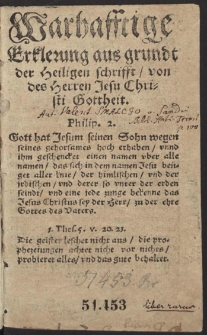 Warhafftige
Erklerung aus grundt
der Heiligen schrifft / von
des Herren Jesu Chri-
sti Gottheit.
Philip. 2.
Gott hat Jesum seinen Sohn wegen
seines gehorsames hoch erhaben / vnnd
ihm geschencket einen namen vber alle
namen / das sich in dem namen Jesu beu-
ge aller knie / der himlischen / vnd der
irdischen / vnd derer so vnter der erden
seindt / vnd eine jede zunge bekenne das
Jesus Christus sey der Herr / zu der ehre
Gottes des Vaters.
1. Thess. 5. v. 20. 21.
Die geister leschet nicht aus / die pro-
phezeiungen achtet nicht vor nichts /
probieret alles / vnd das gute behaltet.
37453.
51.453
Liber rarus